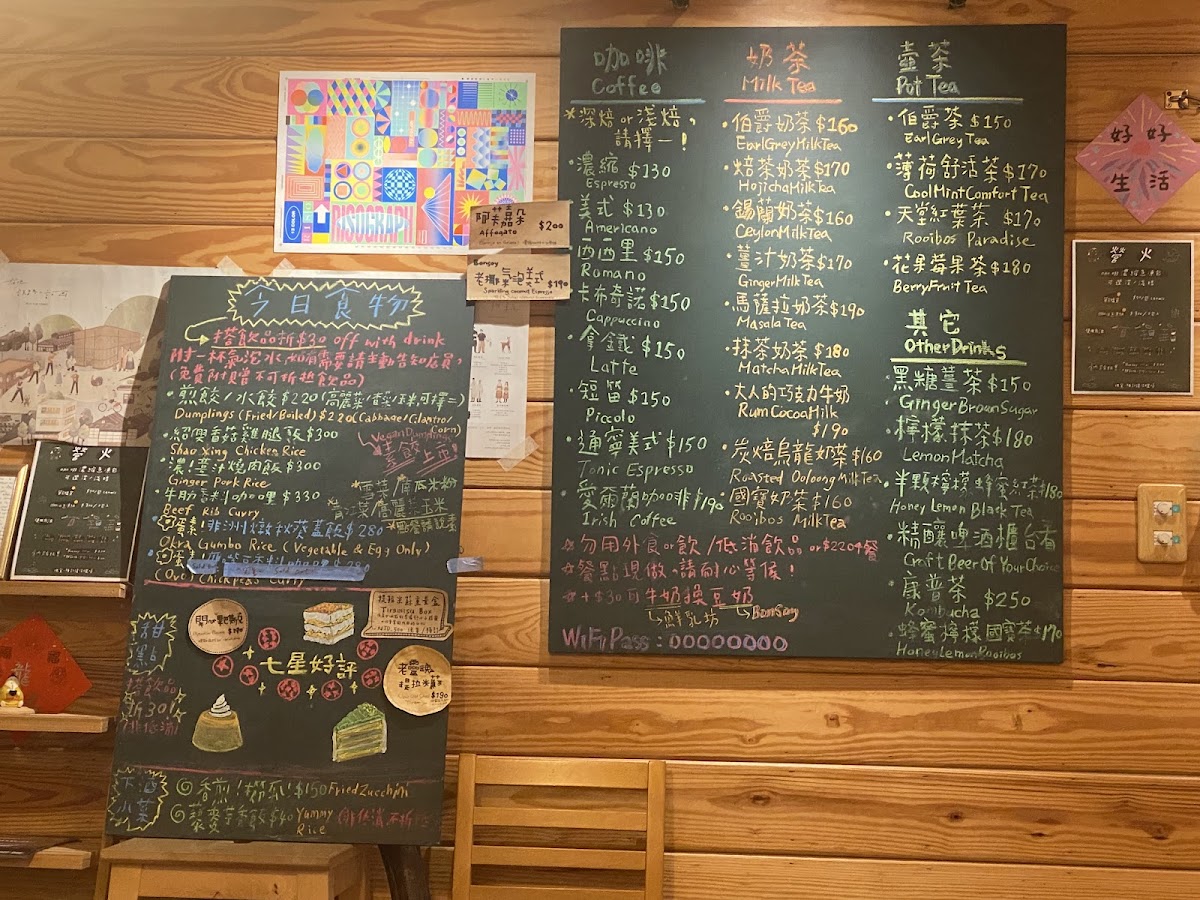 RISOGRAPH
阿芙嘉朵 $200
Affogato
Bonsoy
老娜氣泡美式 $190
Sparkling coconut Espresso
今日食物
搭飲品折$30 off with drink
附一杯氣泡水,如有需要請主動告知店員,
(免費附贈不可折抵飲品)
煎餃/水餃$220(高麗菜/香菜/玉米可擇二)
Dumplings (Fried/Boiled) $220(Cabbage/Cilantro/
Corn)
紹興香菇雞腿飯$300
Shao Xing Chicken Rice
Vegan Dumplings
素餃上市!
濃!薑汁燒肉飯$300
Ginger Pork Rice
牛肋咖哩$330
Beef Rib Curry
非洲燉秋葵蓋飯$280
Okra Gumbo Rice (Vegetable & Egg Only)
(Ovo) Chickpeas Curry
甜點
搭飲品
折30元
非低消
開心戰斧
Tiramisu Box
七星好評
$190
下酒小菜
香煎!櫛瓜!$150 Fried Zucchini
藜麥芋香飯$40 Yummy
Rice
咖啡
Coffee
*深焙or淺焙,
請擇一!
濃縮 $130
Espresso
美式 $130
Americano
西西里 $150
Romano
卡布奇諾 $150
Cappuccino
拿鐵 $150
Latte
短笛 $150
Piccolo
通寧美式 $150
Tonic Espresso
愛爾蘭咖啡 $190
Irish Coffee
奶茶
Milk Tea
伯爵奶茶 $160
EarlGreyMilkTea
焙茶奶茶 $170
HojichaMilkTea
錫蘭奶茶 $160
CeylonMilkTea
薑汁奶茶 $170
GingerMilkTea
馬薩拉奶茶 $190
MasalaTea
抹茶奶茶 $180
MatchaMilkTea
大人的巧克力牛奶
RumCocoaMilk
$190
炭焙烏龍奶茶 $160
Roasted OoloongMilkTea
國寶奶茶 $160
Rooibos MilkTea
壺茶
Pot Tea
伯爵茶 $150
EarlGreyTea
薄荷舒活茶 $170
CoolMintComfort Tea
天堂紅葉茶 $170
Rooibos Paradise
花果莓果茶 $180
BerryFruitTea
其它
OtherDrinks
黑糖薑茶 $150
GingerBrownSugar
檸檬抹茶 $180
LemonMatcha
半顆檸檬蜂蜜紅茶 $180
Honey Lemon Black Tea
精釀啤酒櫃台看
Craft Beer Of Your Choice
康普茶 $250
Kombucha
蜂蜜檸檬國寶茶 $170
HoneyLemonRooibos
勿用外食or飲/低消飲品or$220
餐點現做,請耐心等候!
+$30可牛奶換豆奶
鮮乳坊
Bonsoy
WiFi Pass : 00000000
好好
生活
螢火
螢火